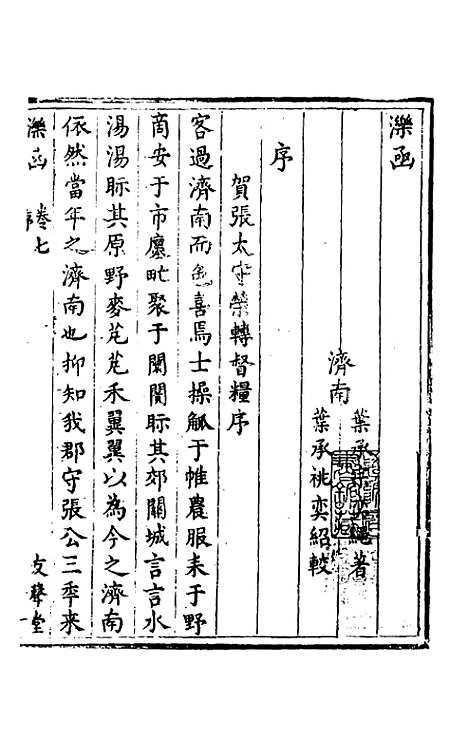 濼函
濟南
葉承宗奕繩著
葉承祧奕紹較
序
賀張太守榮轉督糧序
客過濟南而喜焉士操觚于帷農服耒于野
商安于市廛氓聚于闤闠眎其郊關城言言水
湯湯眎其原野麥芃芃禾翼翼以為今之濟南
依然當年之濟南也抑知我郡守張公三年來
濼函 卷七 序 一 友聲堂